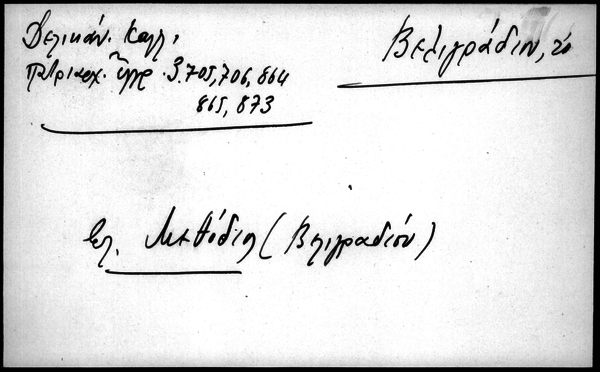 Δελικάν. Καλλ.
Πατριαρχ. ἔγγρ. 3.705,706,864
865, 873
Βελιγράδιον, τὸ
βλ. Μεθόδιος (Βελιγραδίου)